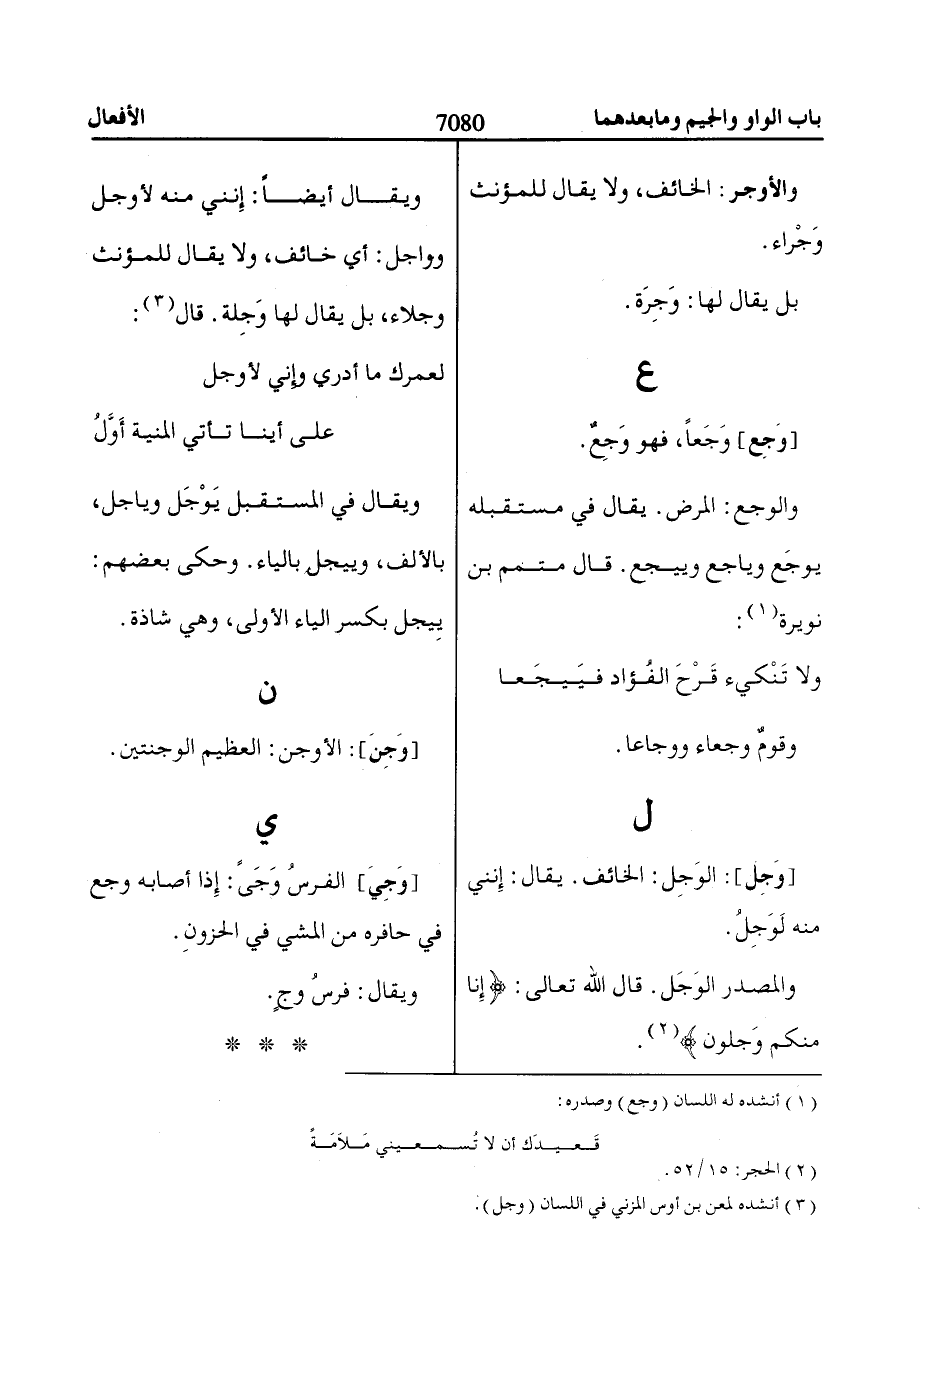 باب الواو والجيم ومابعدهما
7080
الأفعال
والأوجر: الخائف، ولا يقال للمؤنث
وَجْراء.
بل يقال لها: وَجِرَة.
ع
[وَجِع] وَجَعاً، فهو وَجِعٌ.
والوجع: المرض. يقال في مستقبله
يوجَع وياجع وييجع. قال متمم بن
نويرة(١):
ولا تَنْكيء قَرْحَ الفُؤاد فيَيجَعا
وقومٌ وجعاء ووجاعا.
ل
[وَجِل]: الوَجِل: الخائف. يقال: إنني
منه لَوَجِلُ.
والمصدر الوَجَل. قال الله تعالى: ﴿إنا
منكم وَجلون﴾(٢).
ويقال أيضاً: إنني منه لأوجل
وواجل: أي خائف، ولا يقال للمؤنث
وجلاء، بل يقال لها وَجِلة. قال(٣):
لعمرك ما أدري وإني لأوجل
على أينا تأتي المنية أوَّلُ
ويقال في المستقبل يَوْجَل وياجل،
بالألف، وييجل بالياء. وحكى بعضهم:
يِيجل بكسر الياء الأولى، وهي شاذة.
ن
[وَجِنَ]: الأوجن: العظيم الوجنتين.
ي
[وَجِيَ] الفرسُ وَجَىً: إذا أصابه وجع
في حافره من المشي في الحزونِ.
ويقال: فرسُ وجٍ.
* * *
(١) أنشده له اللسان (وجع) وصدره:
قَعيدَك أن لا تُسمعيني مَلاَمَةً
(٢) الحجر: ٥٢/١٥.
(٣) أنشده لمعن بن أوس المزني في اللسان (وجل).